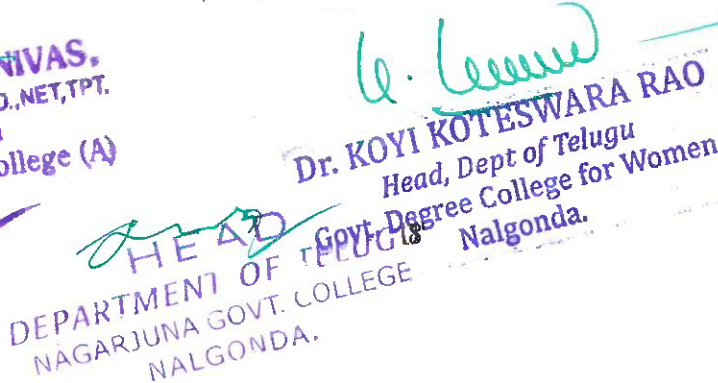 NIVAS.
D.,NET,TPT.
ollege (A)
Dr. KOYI KOTESWARA RAO
Head, Dept of Telugu
Govt. Degree College for Women
Nalgonda.
18
HEAD
DEPARTMENT OF TELUGU
NAGARJUNA GOVT. COLLEGE
NALGONDA.